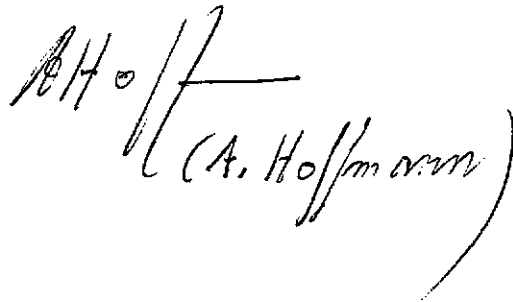 AHoff
(A. Hoffmann)